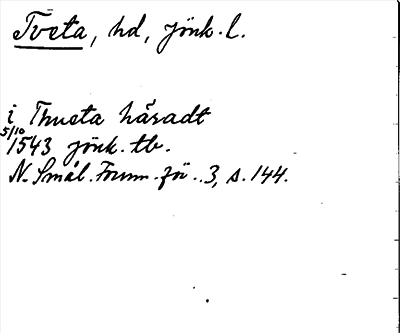 Tveta, hd, Jönk. l.
i Thueta häradt
5/10
1543 Jönk. tb.
N. Smål. Fornm. för.. 3, s. 144.